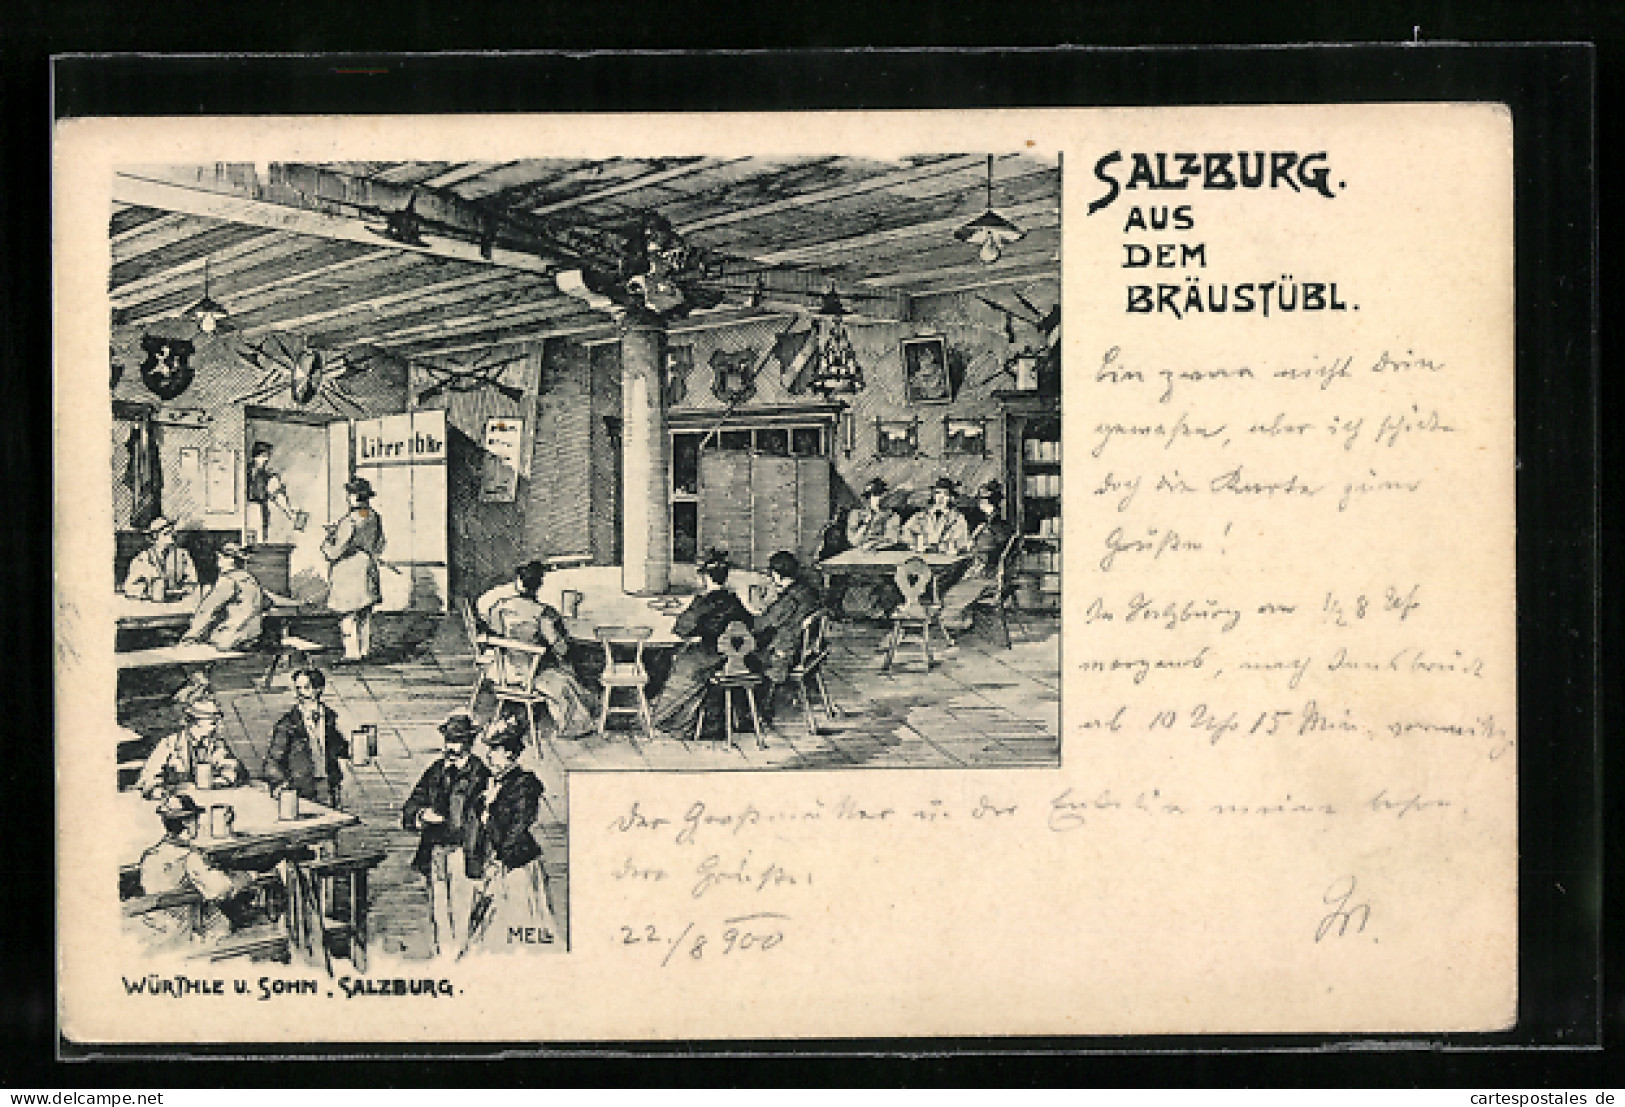 SALZBURG.
AUS
DEM
BRÄUSTÜBL.
Liter 16 Kr
Bin zwar nicht drin
gewesen, aber ich schicke
doch die Karte zum
Grüßen!
In Salzburg an ½ 8 Uhr
morgens, nach Innsbruck
ab 10 Uhr 15 Min.
Der Großmutter u. der meine
Grüße.
22./8 900
MELL
WÜRTHLE U. SOHN, SALZBURG.
www.cartespostales.eu
cartespostales de